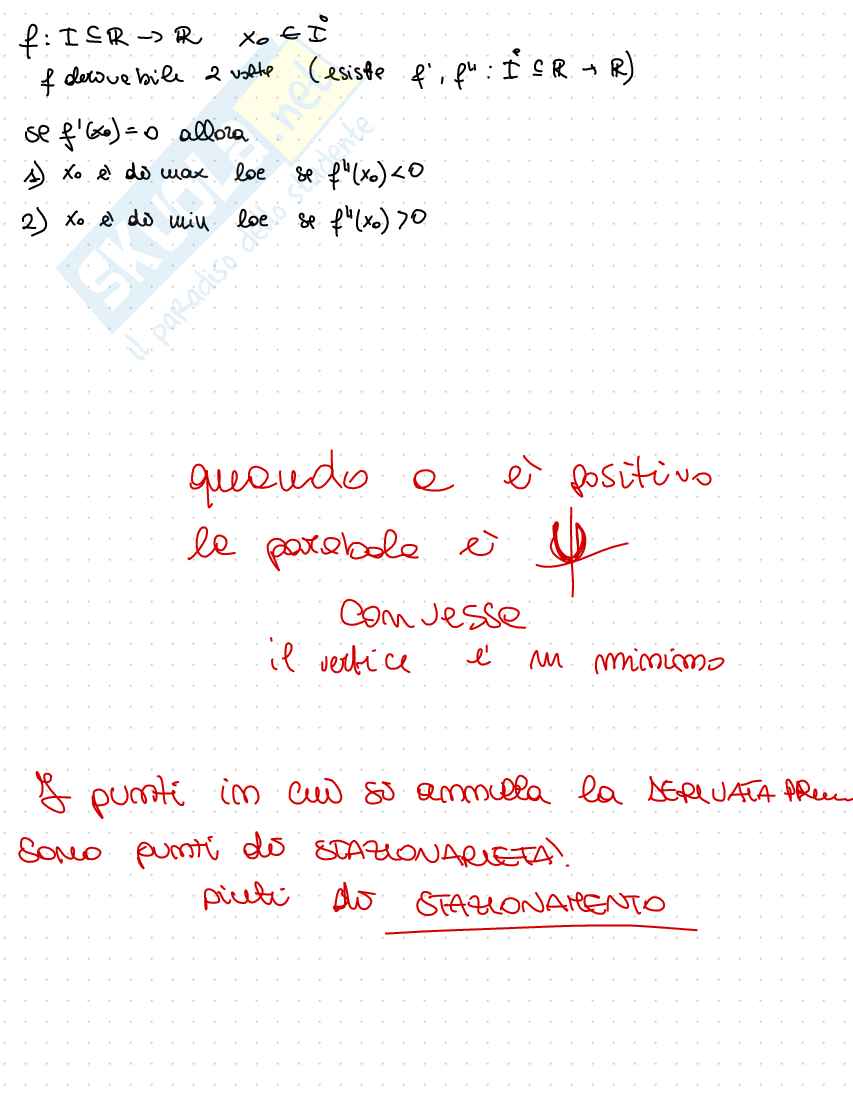 f: I ⊆ ℝ → ℝ x₀ ∈ I̊
f derivabile 2 volte (esiste f', f'' : I̊ ⊆ ℝ → ℝ)
se f'(x₀)=0 allora
1) x₀ è di max loc se f''(x₀)<0
2) x₀ è di min loc se f''(x₀)>0
SKUOLA.net
il paradiso dello studente
quando a è positivo
la parabola è
convessa
il vertice è un minimo
I punti in cui si annulla la DERIVATA PRIMA
sono punti di STAZIONARIETA'.
punti di STAZIONAMENTO